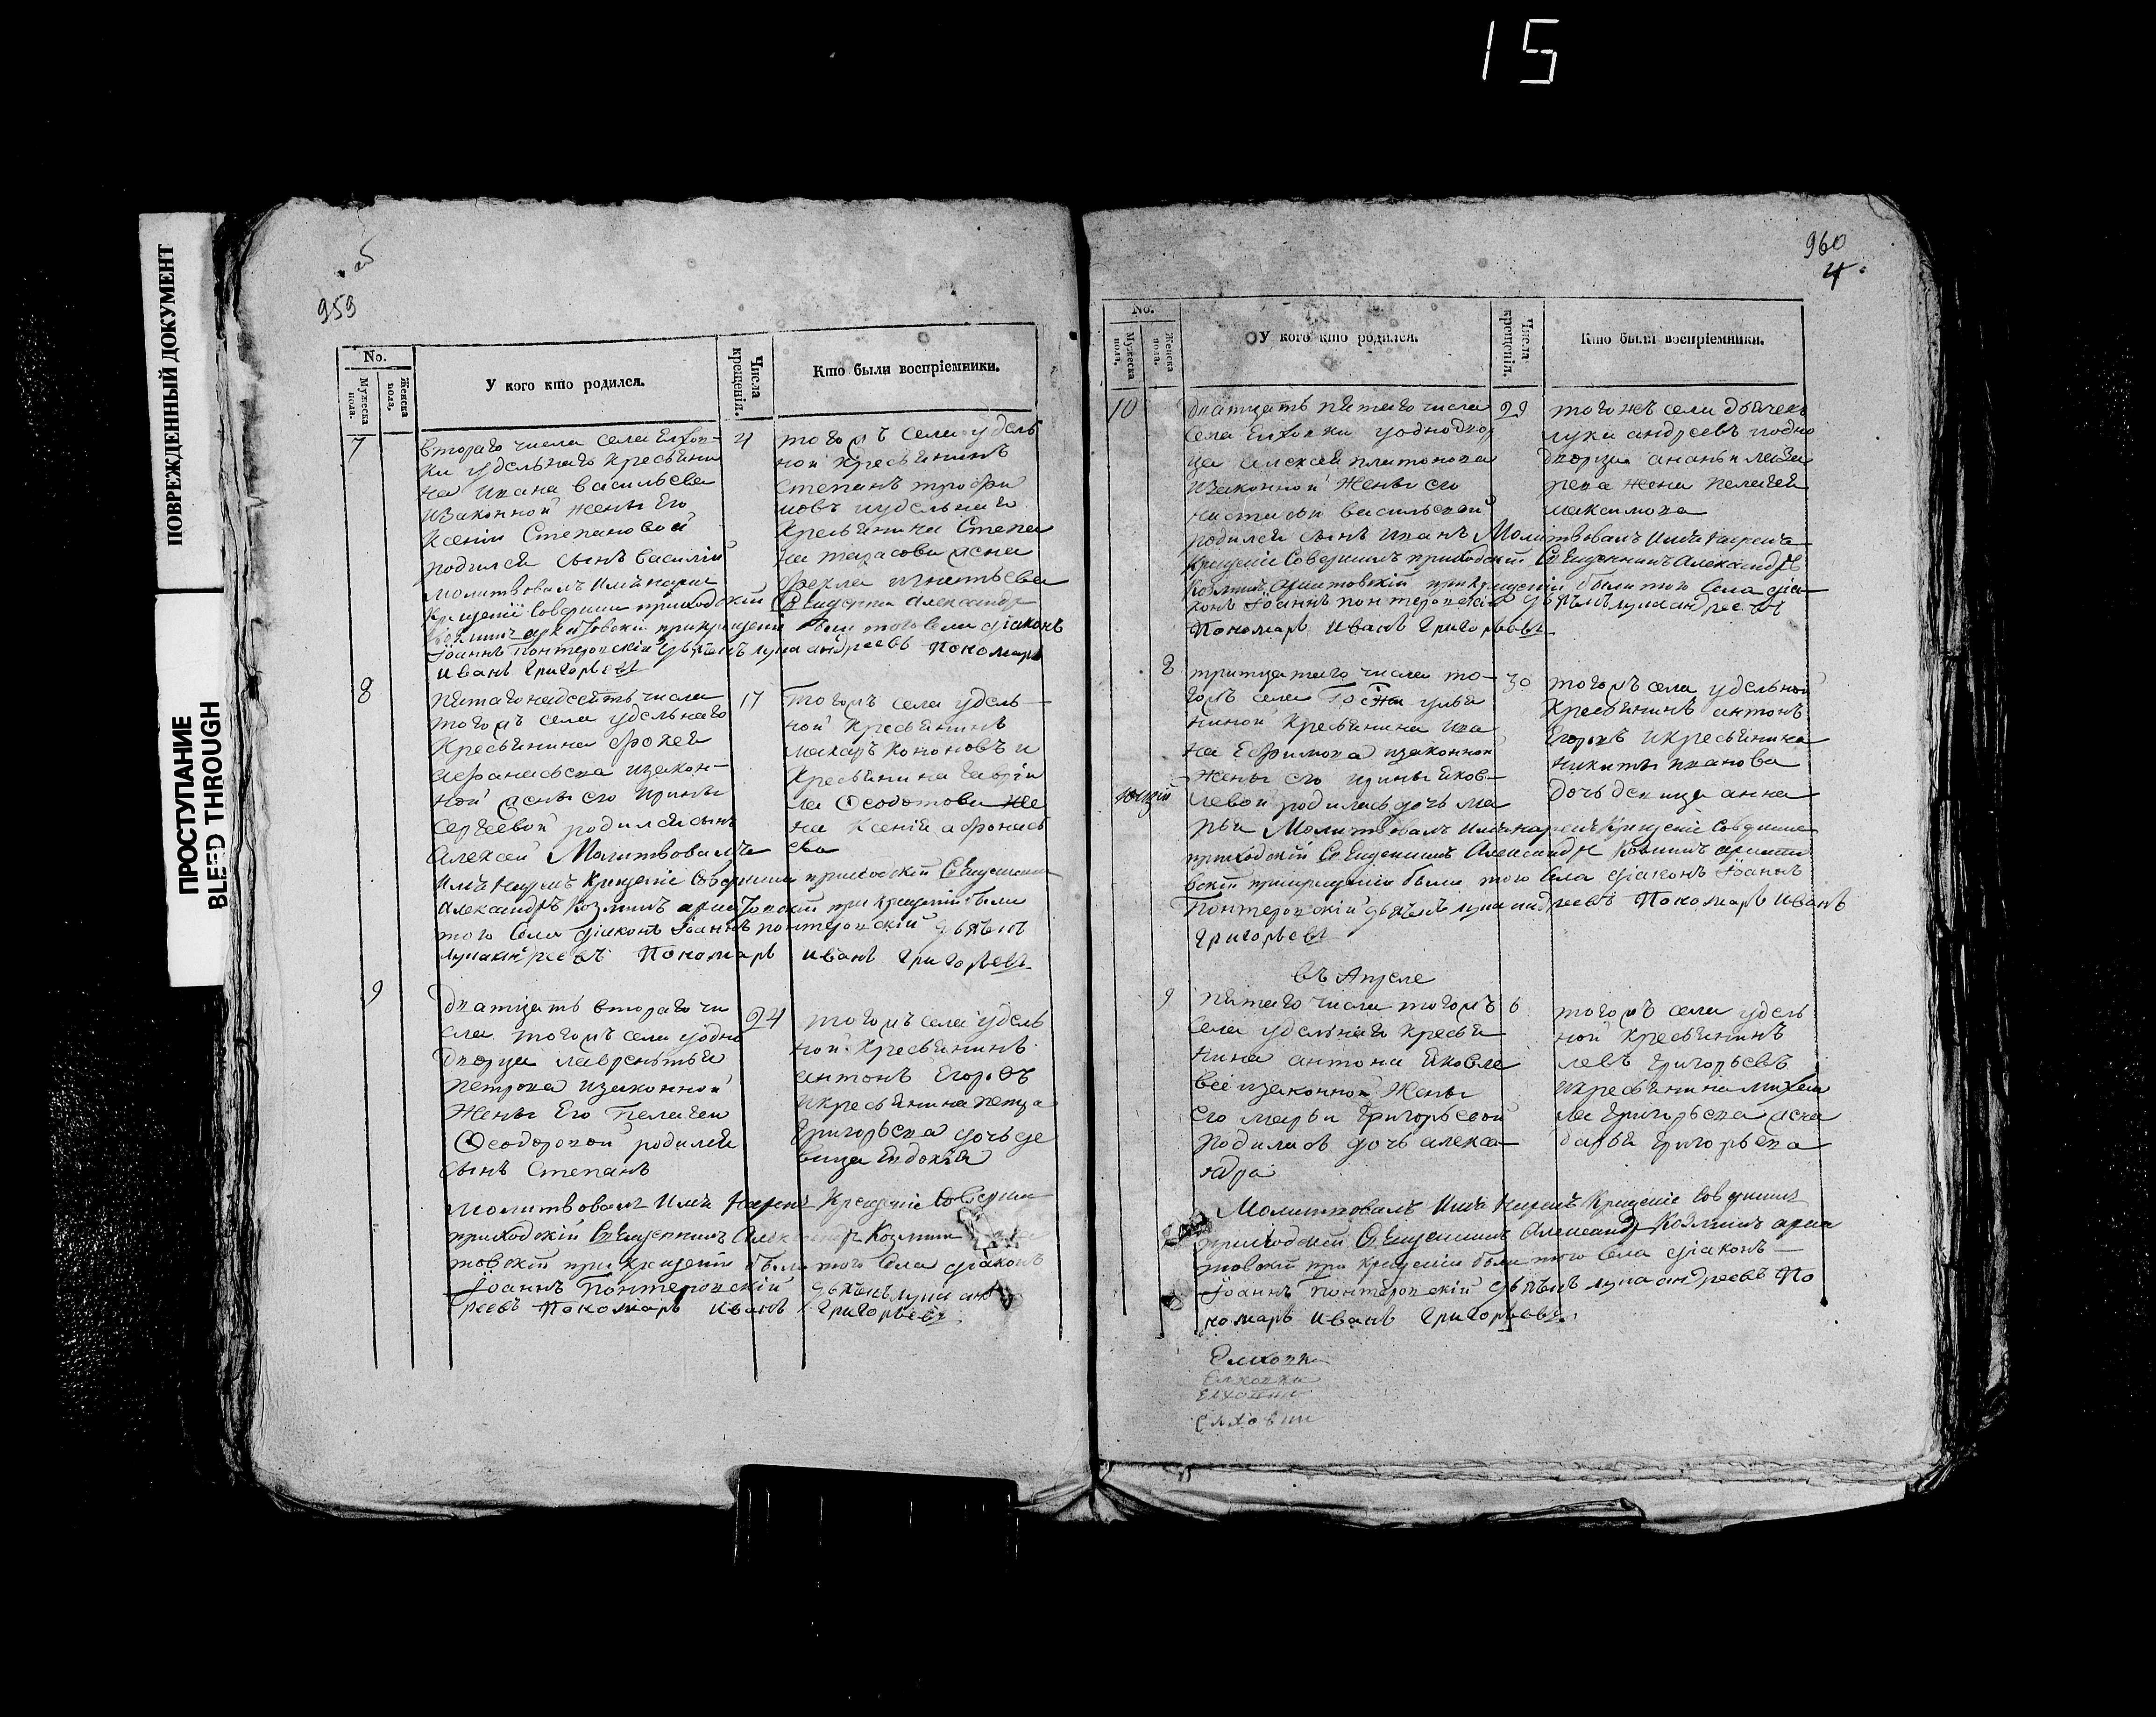 15
ПОВРЕЖДЕННЫЙ ДОКУМЕНТ
ПРОСТУПАНИЕ
BLEED THROUGH
959
No.
Мужеска пола.
Женска пола.
У кого кто родился.
Числа крещенія.
Кто были воспріемники.
7
втораго числа села Елхов-
ки удельнаго кресьяни
на Ивана васильева
изаконной жены Его
Ксении Степановой
родился сынъ василий
4
тогожъ села удель
ной кресьянинъ
степанъ трофи
мовъ иудельнаго
кресьянина Степа
на тарасова жена
фекла игнатьева
молитвовалъ имя нареч
крещение соверши приходский Священни Александръ
Козминъ при крещении были того села диаконъ
Иоаннъ дьячекъ лука андреевъ пономарь
иванъ григорьевъ
8
пятагонадесять числа
тогожъ села удельнаго
кресьянина фокея
афанасьева изакон-
ной жены его ирины
сергеевой родился сынъ
Алексей Молитвовалъ
17
тогожъ села удель-
ной кресьянинъ
макаръ Кононовъ и
кресьянина гаври
ла Феодотова же
на ксения афонась
ева
имя наречъ крещение соверши приходский Священникъ
Александръ Козминъ при крещении были
того села диаконъ Иоаннъ дьячекъ
лука андреевъ Пономарь иванъ григорьевъ
9
дватцать втораго чи
сла тогожъ села уодно
дворца лаврентья
петрова изаконной
жены Его Пелагеи
Феодоровой родился
сынъ Степанъ
24
тогожъ села удель
ной кресьянинъ
антонъ Егоровъ
икресьянина петра
григорьева дочь де
вица Евдокия
молитвовалъ имя наречъ крещение соверши
приходский Священникъ Александръ Козминъ
при крещении были того села диаконъ
Иоаннъ дьячекъ лука анд
реевъ Пономарь иванъ григорьевъ
960
4
No.
Мужеска пола.
Женска пола.
У кого кто родился.
Числа крещенія.
Кто были воспріемники.
10
дватцать пятаго числа
села Елховки уоднодвор
ца алексея платонова
изаконной жены его
настасьи васильевой
29
тогожъ села дьячекъ
лука андреевъ иодно
дворца ананьи лаза
рева жена пелагея
максимова
родился сынъ иванъ Молитвовалъ имя нареч
крещение Совершилъ приходский Священникъ Александръ
Козминъ при крещении были того Села диа-
конъ Иоаннъ дьячекъ лука андреевъ
Пономарь Иванъ Григорьевъ
8
тритцатаго числа то-
гожъ села
кресьянина ива
на Ефимова изаконной
жены его ирины яков-
левой родилась дочь ма
рья Молитвовалъ имя наречъ Крещение Соверши
30
тогожъ села удельной
кресьянинъ антонъ
Егоровъ икресьянина
никиты иванова
дочь девица анна
приходский Священникъ Александръ Козминъ
при крещении были того села диаконъ Иоаннъ
дьячекъ лука андреевъ Пономарь Иванъ
григорьевъ
въ Апреле
9
пятаго числа тогожъ
села удельнаго кресья
нина антона яковле
ва изаконной жены
его марьи григорьевой
родилась дочь алекса
ндра
6
тогожъ села удель
ной кресьянинъ
левъ григорьевъ
икресьянина михаи
ла григорьева жена
дарья григорьева
Молитвовалъ имя наречъ Крещение Совершилъ
приходской Священникъ Александръ Козминъ
при крещении были того села диаконъ
Иоаннъ дьячекъ лука андреевъ По
номарь иванъ григорьевъ.
Елховки
Елховки
Елховки
Елховки